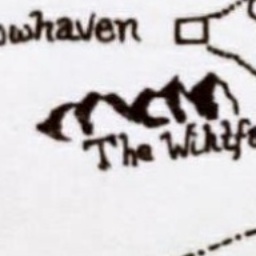 owhaven
The Wihtfe